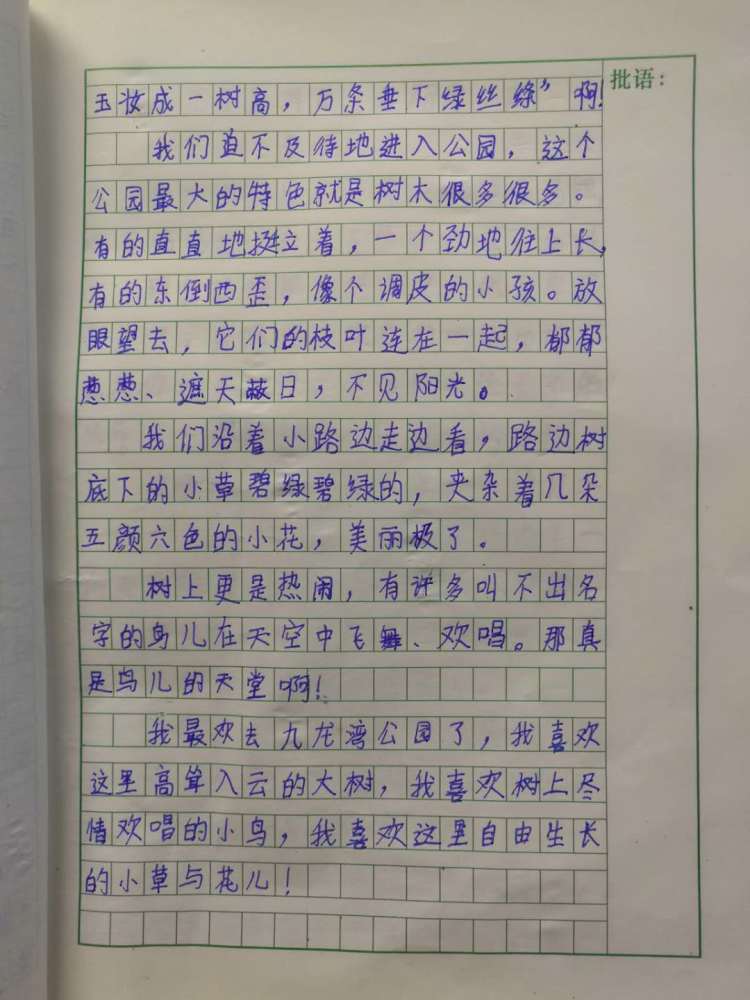 批语：
玉妆成一树高，万条垂下绿丝绦”啊！
我们迫不及待地进入公园，这个
公园最大的特色就是树木很多很多。
有的直直地挺立着，一个劲地往上长，
有的东倒西歪，像个调皮的小孩。放
眼望去，它们的枝叶连在一起，郁郁
葱葱、遮天蔽日，不见阳光。
我们沿着小路边走边看，路边树
底下的小草碧绿碧绿的，夹杂着几朵
五颜六色的小花，美丽极了。
树上更是热闹，有许多叫不出名
字的鸟儿在天空中飞舞、欢唱。那真
是鸟儿的天堂啊！
我最欢去九龙湾公园了，我喜欢
这里高耸入云的大树，我喜欢树上尽
情欢唱的小鸟，我喜欢这里自由生长
的小草与花儿！